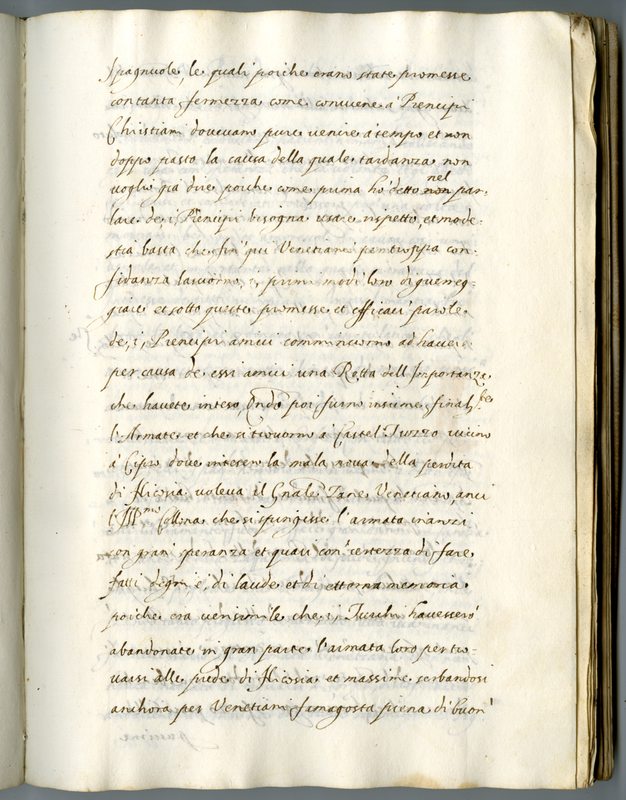 Spagnuole, le quali poiche erano state promesse
con tanta fermezza come conviene á Prencipi
Christiani dovevano pure venire á tempo et non
doppo pasto la causa della quale tardanza non
voglio già dire poiche come prima hó detto nel non par-
lare de, i Prencipi bisogna usare rispetto, et mode-
stia basta che fin' qui Venetiani per troppa con-
fidanza lasciorno, i, primi modi loro di guerreg-
giare et sotto queste promesse et efficaci parole
de, i, Prencipi amici comminciorno ad haver
per causa de essi amici una Rotta dell'Importanza
che havete inteso, Onde poi furno insieme final.te
l'Armate et che si trovorno á Castel Ruzzo vicino
á Cipro dove intesero la mala nova della perdita
di Nicosia voleva il Gnale Zane Venetiano, anci
l'Ill.mo Collona che si spingisse l'armata inanzi
con gran' speranza et quasi con' certezza di fare
fatti degni é, di laude et di etterna memoria
poiche era verisimile che, i Turchi havessero
abandonate in gran parte l'armata loro per tro-
varsi alle prede di Nicosia et massime serbandosi
anchora per Venetiani Famagosta piena di buon'